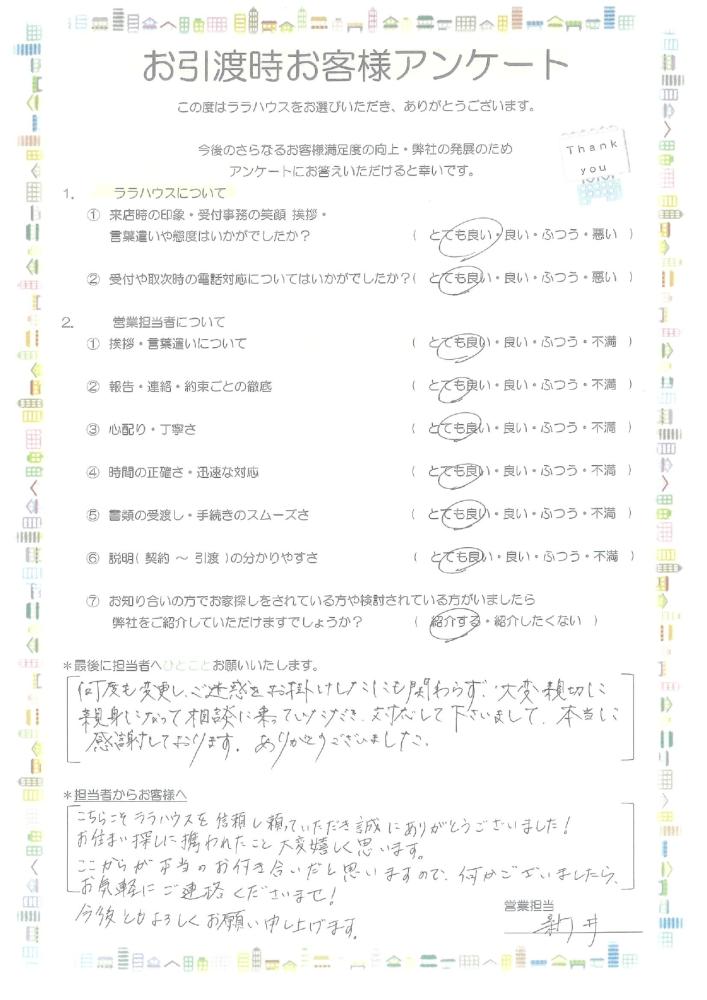 お引渡時お客様アンケート
この度はララハウスをお選びいただき、ありがとうございます。
今後のさらなるお客様満足度の向上・弊社の発展のため
アンケートにお答えいただけると幸いです。
Thank
you
1. ララハウスについて
① 来店時の印象・受付事務の笑顔 挨拶・
言葉遣いや態度はいかがでしたか? ( とても良い・良い・ふつう・悪い )
② 受付や取次時の電話対応についてはいかがでしたか?( とても良い・良い・ふつう・悪い )
2. 営業担当者について
① 挨拶・言葉遣いについて ( とても良い・良い・ふつう・不満 )
② 報告・連絡・約束ごとの徹底 ( とても良い・良い・ふつう・不満 )
③ 心配り・丁寧さ ( とても良い・良い・ふつう・不満 )
④ 時間の正確さ・迅速な対応 ( とても良い・良い・ふつう・不満 )
⑤ 書類の受渡し・手続きのスムーズさ ( とても良い・良い・ふつう・不満 )
⑥ 説明( 契約 ～ 引渡 )の分かりやすさ ( とても良い・良い・ふつう・不満 )
⑦ お知り合いの方でお家探しをされている方や検討されている方がいましたら
弊社をご紹介していただけますでしょうか? ( 紹介する・紹介したくない )
*最後に担当者へひとことお願いいたします。
何度も変更し、ご迷惑をお掛けしたにも関わらず、大変親切に
親身になって相談に乗っていただき、対応して下さいまして、本当に
感謝しております。ありがとうございました。
*担当者からお客様へ
こちらこそララハウスを信頼し頼っていただき誠にありがとうございました!
お住まい探しに携われたこと大変嬉しく思います。
ここからが本当のお付き合いだと思いますので、何かございましたら、
お気軽にご連絡くださいませ!
今後ともよろしくお願い申し上げます。
営業担当
新井